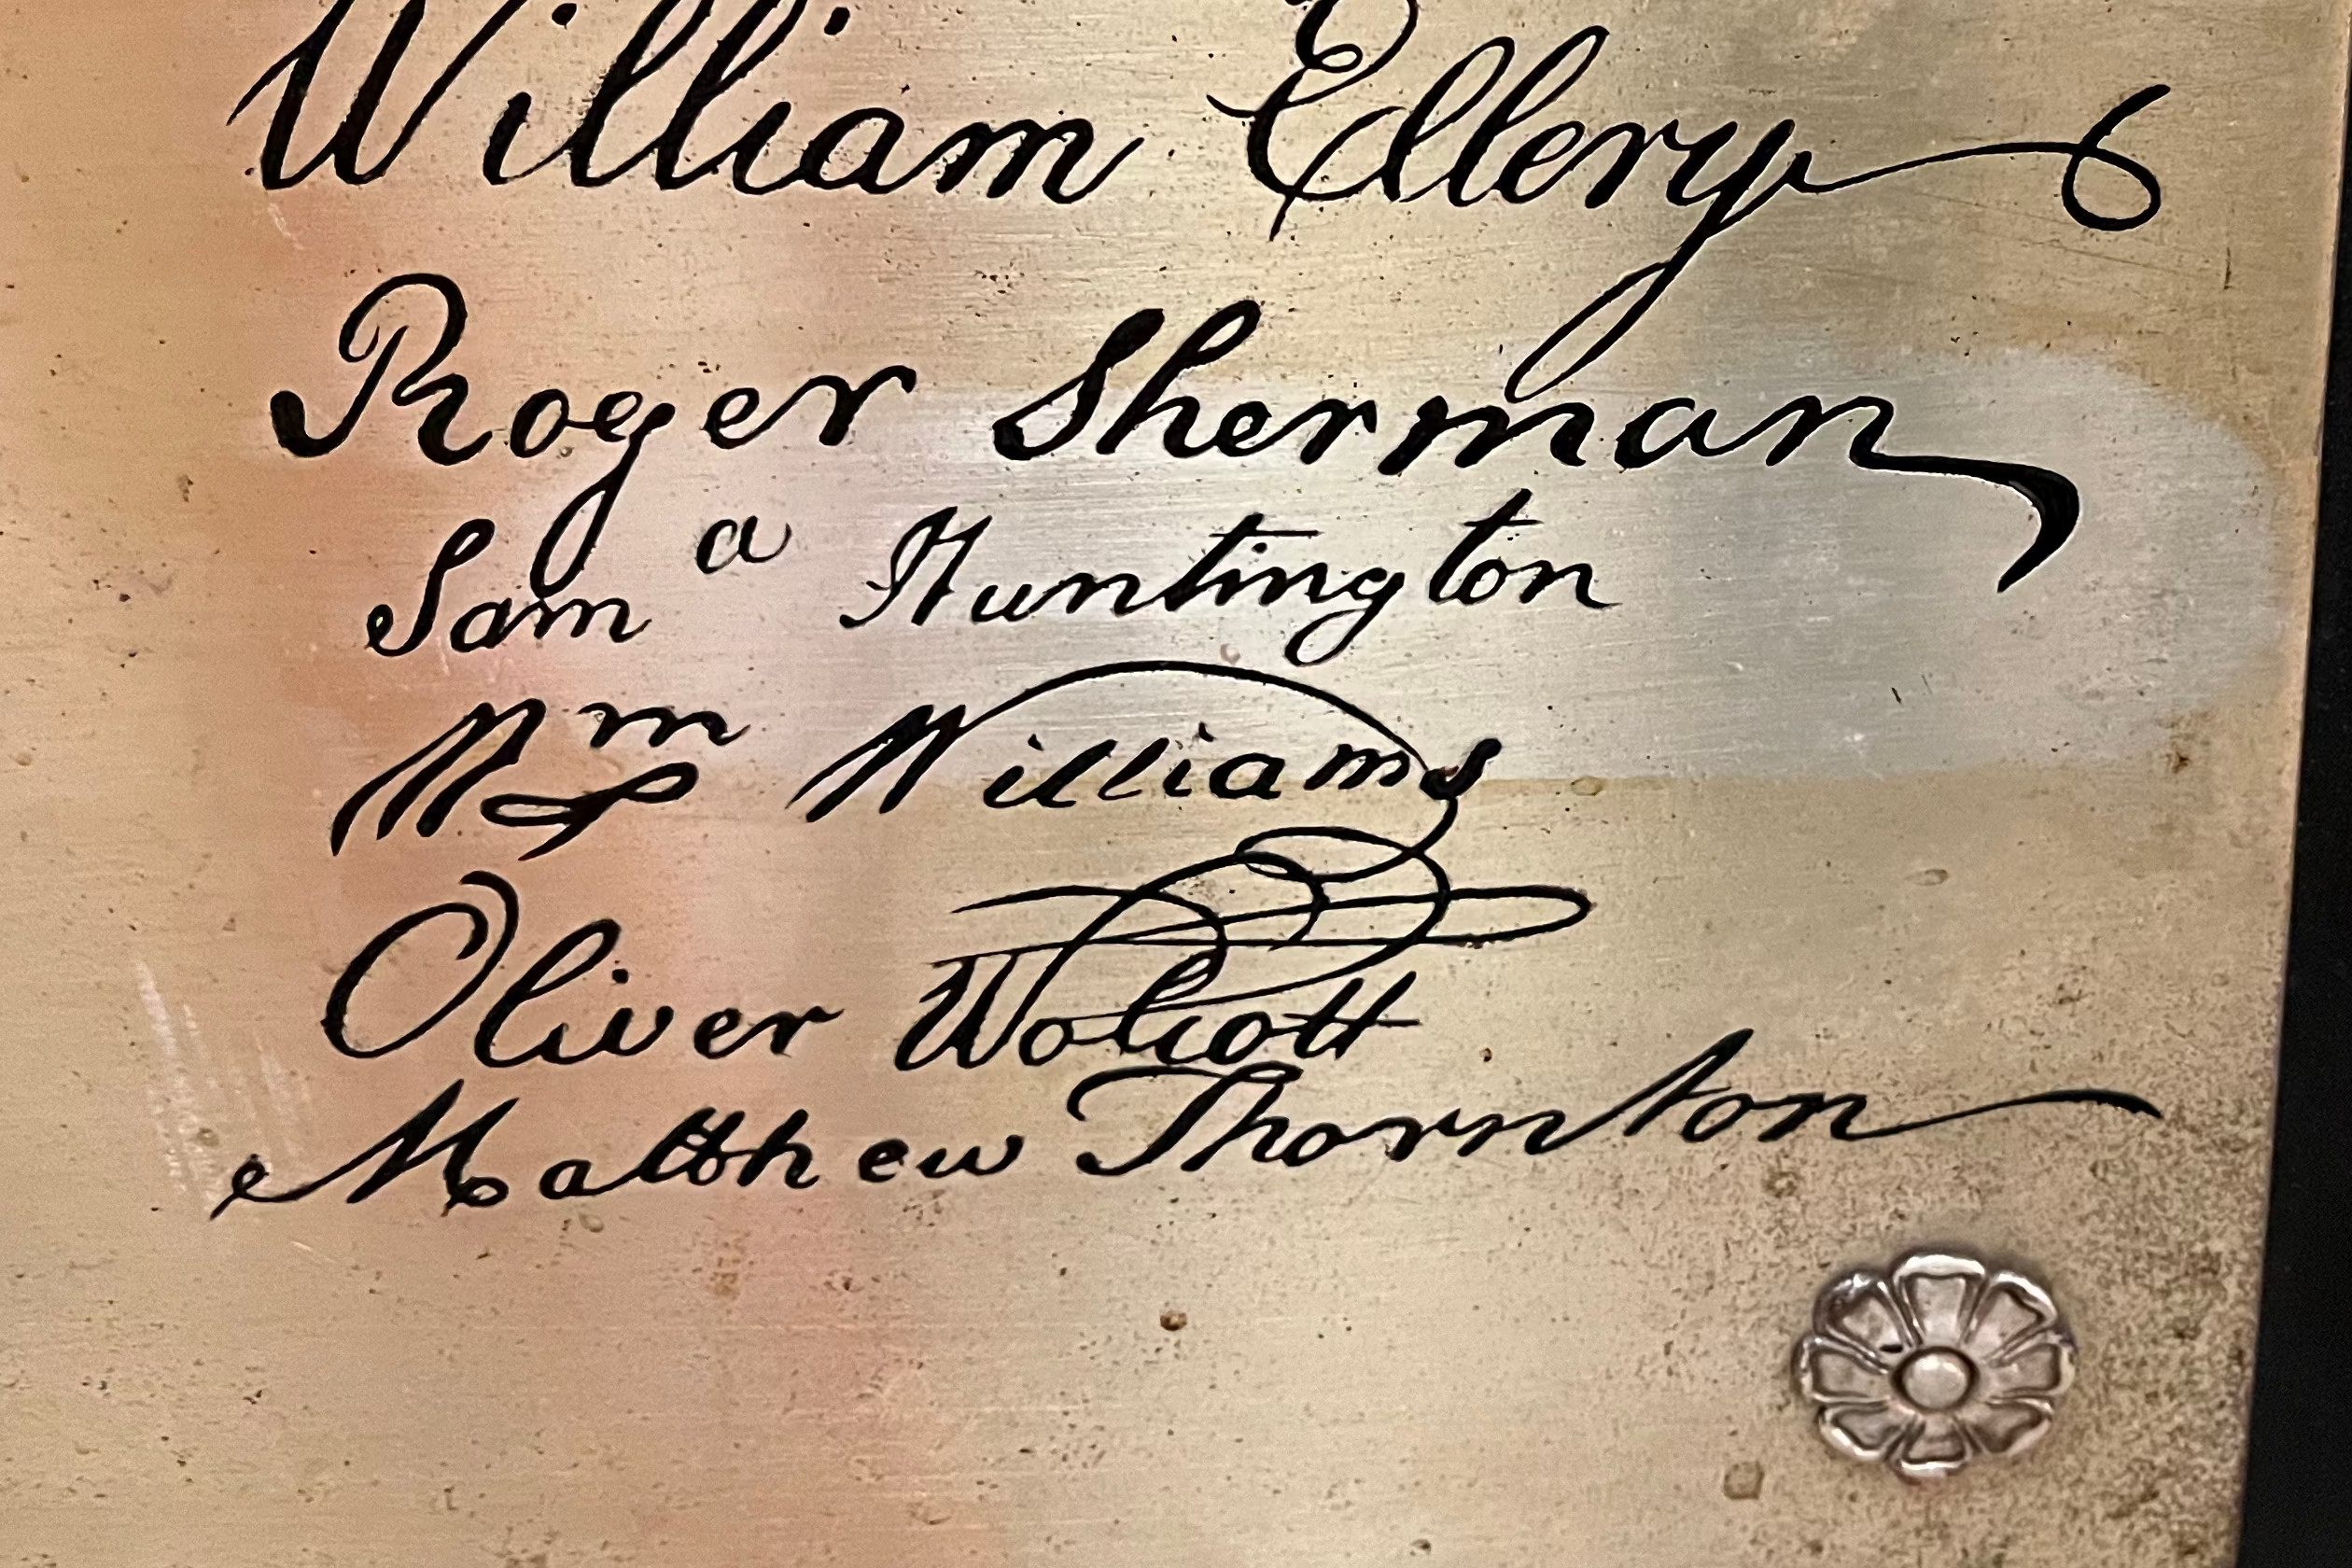 William Ellery
Roger Sherman
Sam a Huntington
Wm Williams
Oliver Wolcott
Matthew Thornton